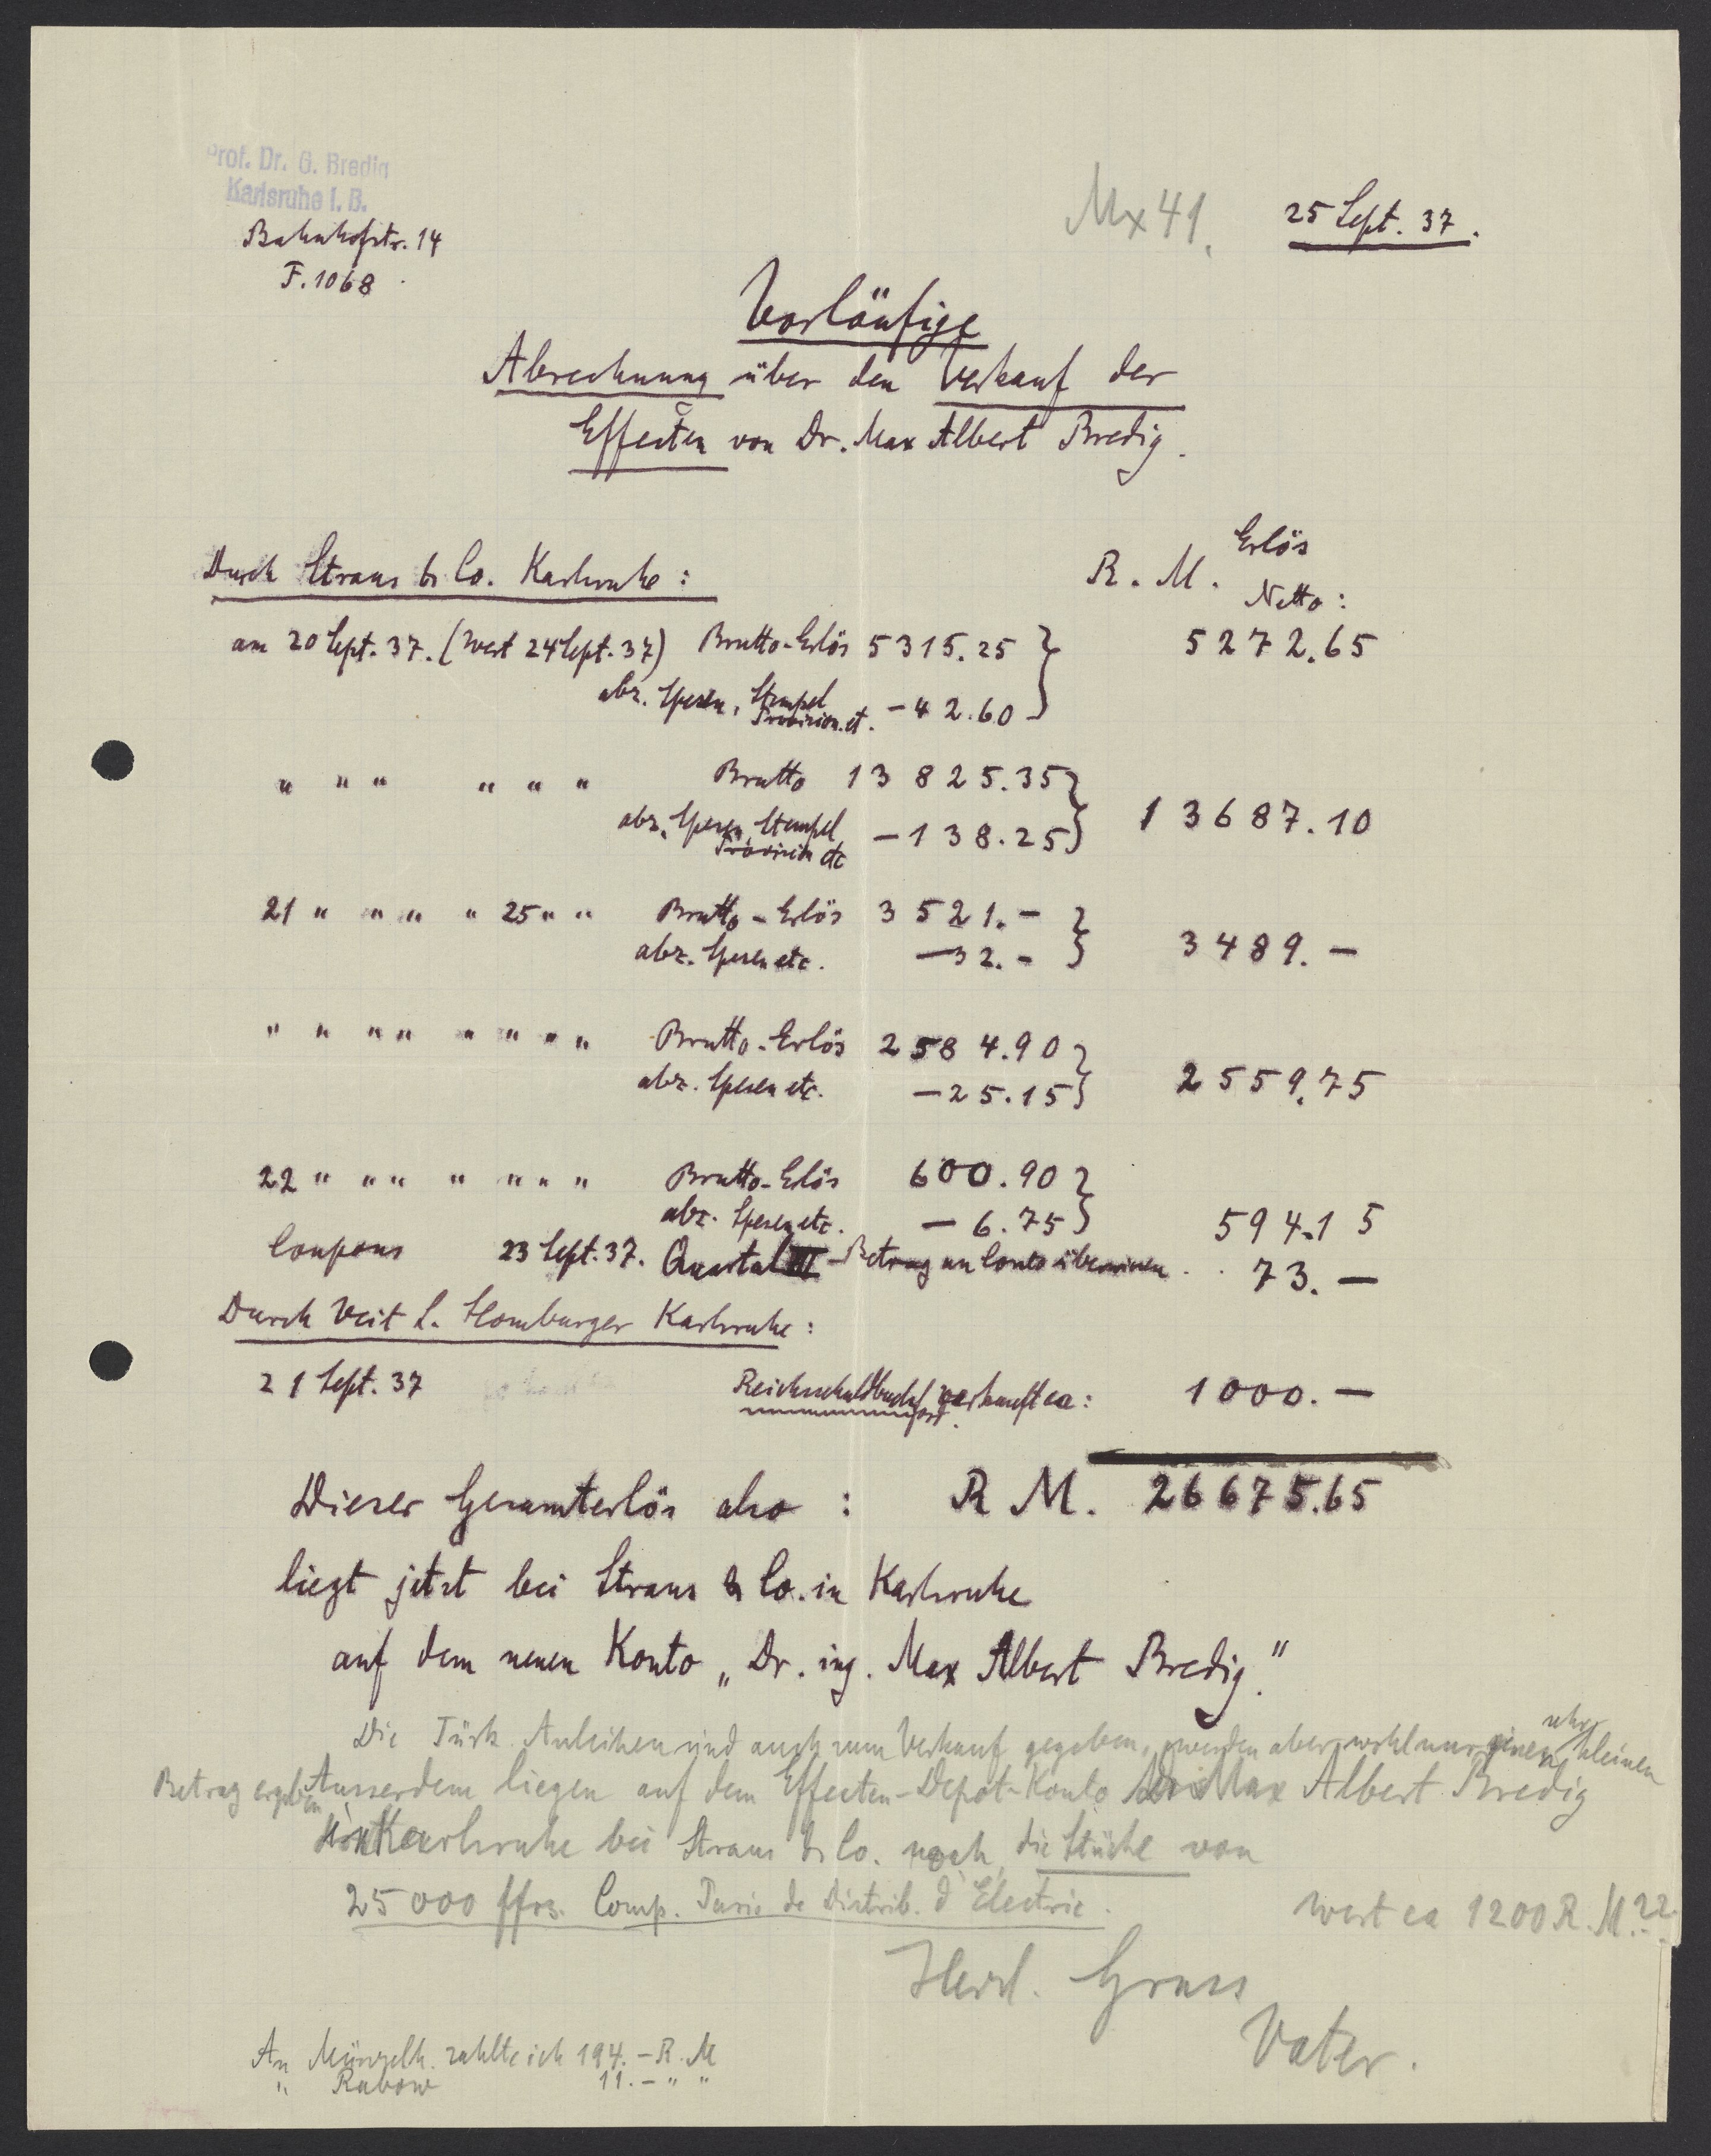 Prof. Dr. G. Bredig
Karlsruhe i. B.
Bahnhofstr. 14
F. 1068
Mx 41.
25 Sept. 37.
Vorläufige
Abrechnung über den Verkauf der
Effecten von Dr. Max Albert Bredig.
Durch Straus & Co. Karlsruhe :
R. M. Erlös
Netto :
am 20 Sept. 37. (Wert 24 Sept. 37) Brutto-Erlös 5315.25 } 5272.65
abz. Spesen, Stempel
Provision. et. - 42.60
" " " " " " Brutto 13825.35 } 13687.10
abz. Spesen, Stempel
Provision etc - 138.25
21 " " " " " 25 " " Brutto-Erlös 3521.- } 3489.-
abz. Spesen etc. - 32.-
" " " " " " " " Brutto-Erlös 2584.90 } 2559.75
abz. Spesen etc. - 25.15
22 " " " " " " " Brutto-Erlös 600.90 } 594.15
abz. Spesen etc. - 6.75
Coupons 23 Sept. 37. Quartal III - Betrag an Conto überwiesen . . 73.-
Durch Veit L. Homburger Karlsruhe :
21 Sept. 37 Reichsschuldbuchford. verkauft ca : 1000.-
Dieser Gesamterlös also : R M. 26675.65
liegt jetzt bei Straus & Co. in Karlsruhe
auf dem neuen Konto „Dr. ing. Max Albert Bredig."
Die Türk. Anleihen sind auch zum Verkauf gegeben, werden aber wohl nur einen sehr kleinen
Betrag ergeben Ausserdem liegen auf dem Effecten-Depot-Konto Dr Max Albert Bredig
in Karlsruhe bei Straus & Co. noch die Stücke von
25 000 ffrs. Comp. Paris de Distrib. d'Electric. Wert ca 1200 R. M.??
Herzl. Gruss
Vater.
An Münzelh. zahlte ich 194.- R. M
" Rabow 11.- " "